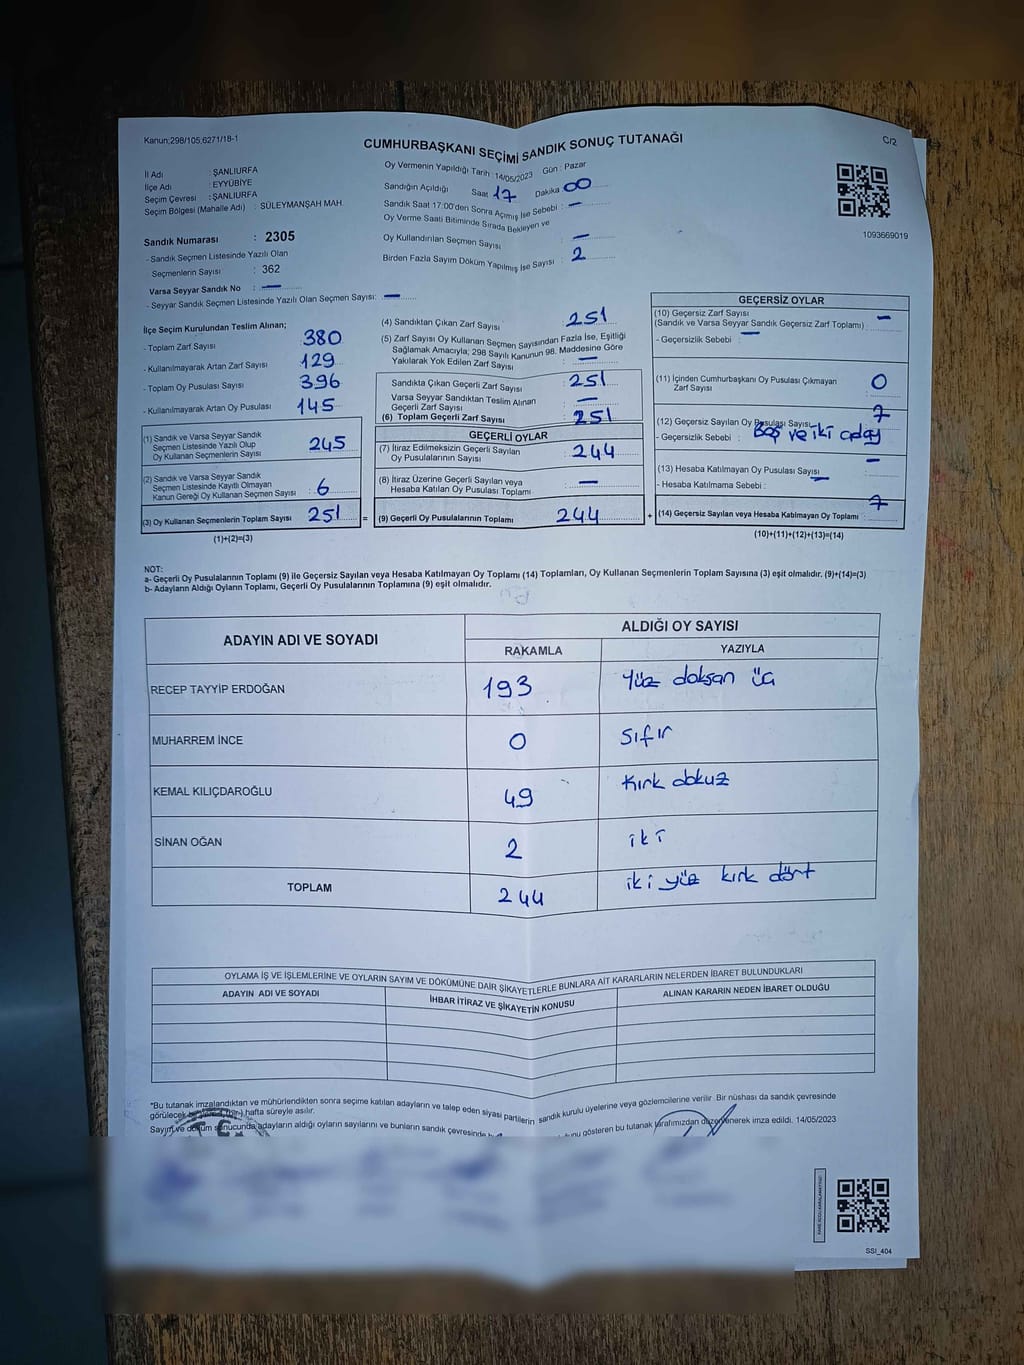 Kanun;298/105,6271/18-1
C/2
CUMHURBAŞKANI SEÇİMİ SANDIK SONUÇ TUTANAĞI
İl Adı : ŞANLIURFA
İlçe Adı : EYYÜBİYE
Seçim Çevresi : ŞANLIURFA
Seçim Bölgesi (Mahalle Adı) : SÜLEYMANŞAH MAH.
Sandık Numarası : 2305
- Sandık Seçmen Listesinde Yazılı Olan
Seçmenlerin Sayısı : 362
Varsa Seyyar Sandık No : —
- Seyyar Sandık Seçmen Listesinde Yazılı Olan Seçmen Sayısı: —
Oy Vermenin Yapıldığı Tarih : 14/05/2023 Gün : Pazar
Sandığın Açıldığı Saat 17 Dakika 00
Sandık Saat 17:00'den Sonra Açımış İse Sebebi : —
Oy Verme Saati Bitiminde Sırada Bekleyen ve
Oy Kullandırılan Seçmen Sayısı : —
Birden Fazla Sayım Döküm Yapılmış İse Sayısı : 2
1093669019
İlçe Seçim Kurulundan Teslim Alınan;
- Toplam Zarf Sayısı 380
- Kullanılmayarak Artan Zarf Sayısı 129
- Toplam Oy Pusulası Sayısı 396
- Kullanılmayarak Artan Oy Pusulası 145
(1) Sandık ve Varsa Seyyar Sandık
Seçmen Listesinde Yazılı Olup
Oy Kullanan Seçmenlerin Sayısı 245
(2) Sandık ve Varsa Seyyar Sandık
Seçmen Listesinde Kayıtlı Olmayan
Kanun Gereği Oy Kullanan Seçmen Sayısı 6
(3) Oy Kullanan Seçmenlerin Toplam Sayısı 251 =
(1)+(2)=(3)
(4) Sandıktan Çıkan Zarf Sayısı : 251
(5) Zarf Sayısı Oy Kullanan Seçmen Sayısından Fazla İse, Eşitliği
Sağlamak Amacıyla; 298 Sayılı Kanunun 98. Maddesine Göre
Yakılarak Yok Edilen Zarf Sayısı : —
Sandıkta Çıkan Geçerli Zarf Sayısı : 251
Varsa Seyyar Sandıktan Teslim Alınan
Geçerli Zarf Sayısı : —
(6) Toplam Geçerli Zarf Sayısı : 251
GEÇERLİ OYLAR
(7) İtiraz Edilmeksizin Geçerli Sayılan
Oy Pusulalarının Sayısı : 244
(8) İtiraz Üzerine Geçerli Sayılan veya
Hesaba Katılan Oy Pusulası Toplamı : —
(9) Geçerli Oy Pusulalarının Toplamı 244 +
GEÇERSİZ OYLAR
(10) Geçersiz Zarf Sayısı
(Sandık ve Varsa Seyyar Sandık Geçersiz Zarf Toplamı) : —
- Geçersizlik Sebebi : —
(11) İçinden Cumhurbaşkanı Oy Pusulası Çıkmayan
Zarf Sayısı : 0
(12) Geçersiz Sayılan Oy Pusulası Sayısı : 7
- Geçersizlik Sebebi : Boş ve iki aday
(13) Hesaba Katılmayan Oy Pusulası Sayısı : —
- Hesaba Katılmama Sebebi : —
(14) Geçersiz Sayılan veya Hesaba Katılmayan Oy Toplamı : 7
(10)+(11)+(12)+(13)=(14)
NOT:
a- Geçerli Oy Pusulalarının Toplamı (9) ile Geçersiz Sayılan veya Hesaba Katılmayan Oy Toplamı (14) Toplamları, Oy Kullanan Seçmenlerin Toplam Sayısına (3) eşit olmalıdır. (9)+(14)=(3)
b- Adayların Aldığı Oyların Toplamı, Geçerli Oy Pusulalarının Toplamına (9) eşit olmalıdır.
ADAYIN ADI VE SOYADI
ALDIĞI OY SAYISI
RAKAMLA YAZIYLA
RECEP TAYYİP ERDOĞAN 193 Yüz doksan üç
MUHARREM İNCE 0 Sıfır
KEMAL KILIÇDAROĞLU 49 Kırk dokuz
SİNAN OĞAN 2 iki
TOPLAM 244 iki yüz kırk dört
OYLAMA İŞ VE İŞLEMLERİNE VE OYLARIN SAYIM VE DÖKÜMÜNE DAİR ŞİKAYETLERLE BUNLARA AİT KARARLARIN NELERDEN İBARET BULUNDUKLARI
ADAYIN ADI VE SOYADI İHBAR İTİRAZ VE ŞİKAYETİN KONUSU ALINAN KARARIN NEDEN İBARET OLDUĞU
*Bu tutanak imzalandıktan ve mühürlendikten sonra seçime katılan adayların ve talep eden siyasi partilerin sandık kurulu üyelerine veya gözlemcilerine verilir. Bir nüshası da sandık çevresinde
görülecek bir (bir) hafta süreyle asılır.
Sayım ve döküm sonucunda adayların aldığı oyların sayılarını ve bunların sandık çevresinde gösteren bu tutanak tarafımızdan düzenlenerek imza edildi. 14/05/2023
SSI_404